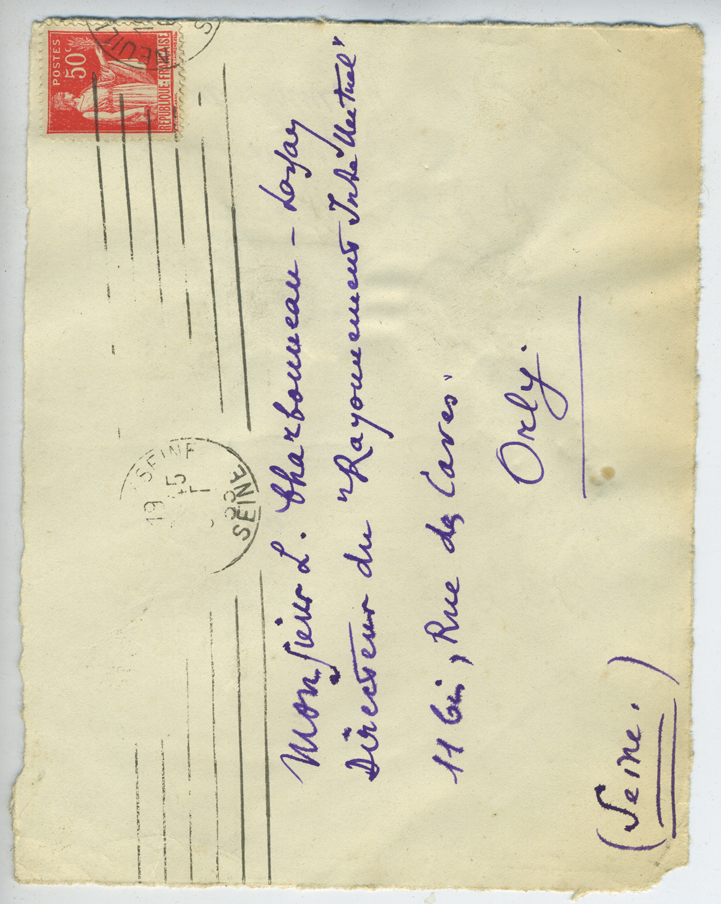 POSTES
50c
REPUBLIQUE FRANÇAISE
NEUIL
SEINE
19 45
SEINE
Monsieur L. Charbonneau-Lassay
Directeur du "Rayonnement Intellectuel"
11 bis, Rue des Caves.
Orly.
(Seine.)